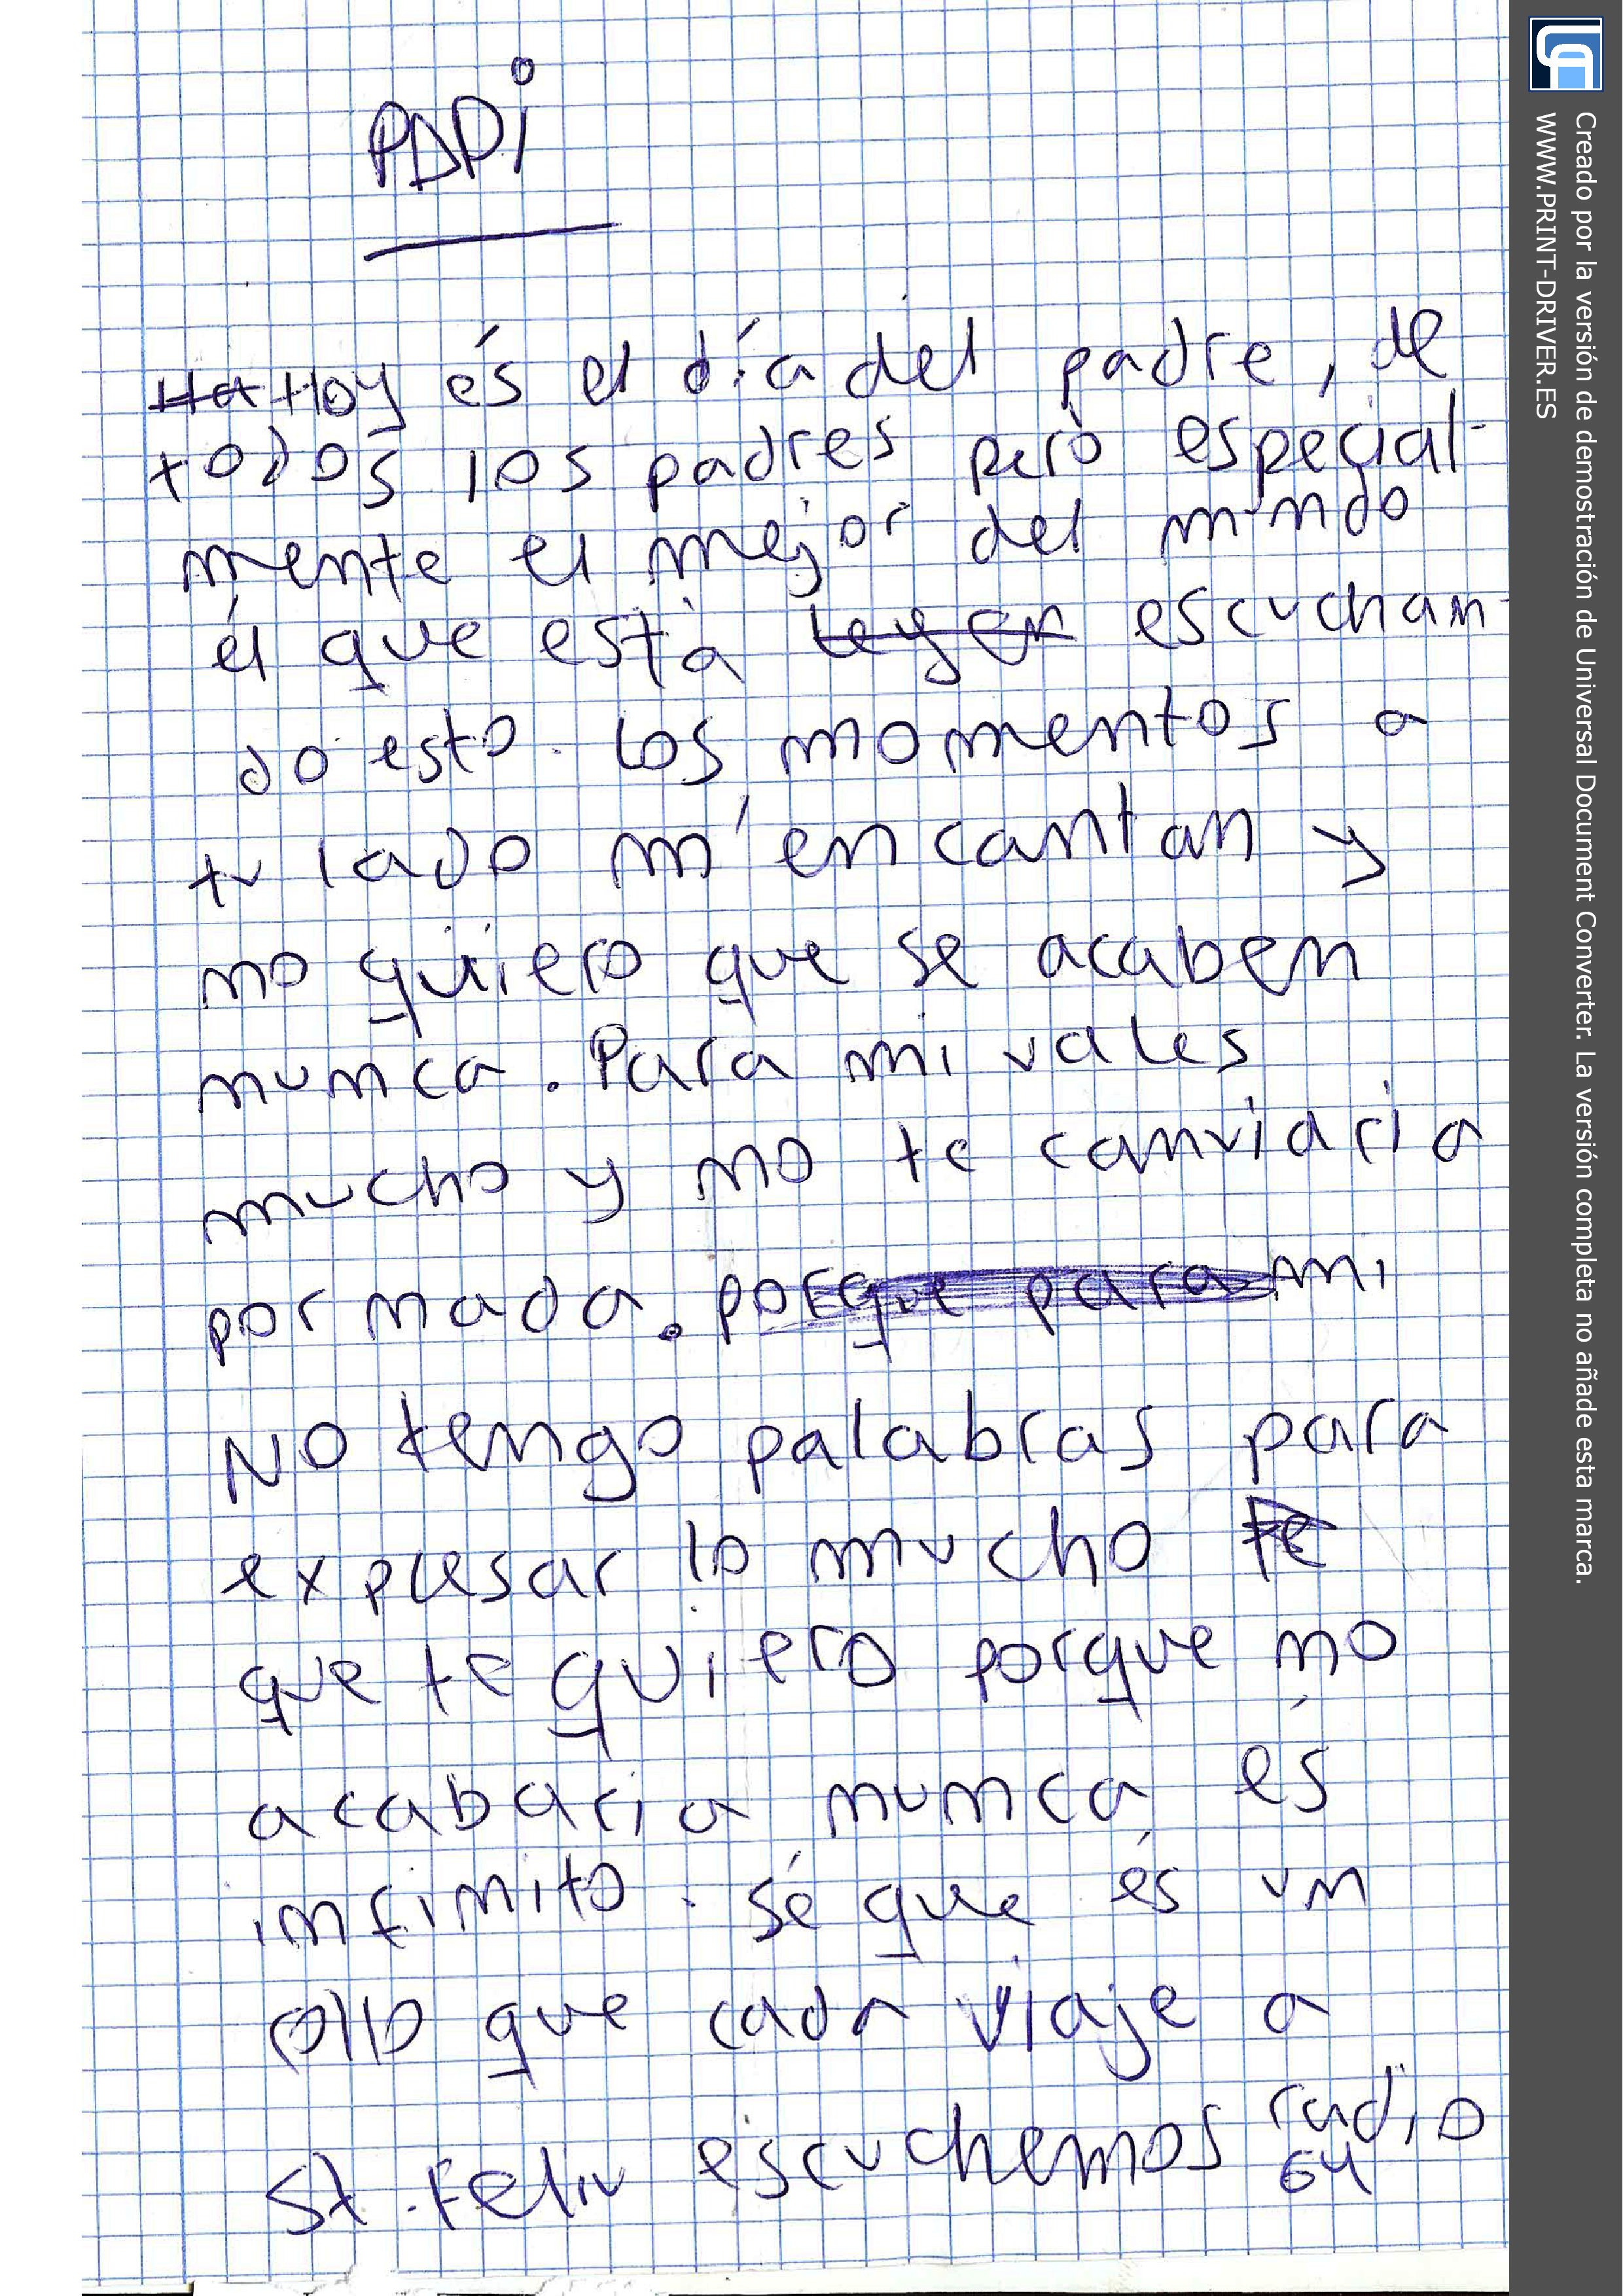 PAPi
Ha Hoy és el día del padre, de
todos los padres però especial-
mente el mejor del mundo
él que està leyen escuchan-
do esto. Los momentos a
tu lado m'encantan y
no quiero que se acaben
nunca. Para mi vales
mucho y no te canviaria
por nada. porque para mi
No tengo palabras para
expresar lo mucho te
que te quiero porque no
acabaria nunca és
infinito. Sé que és un
rollo que cada viaje a
St. Feliu escuchemos radio
64
Creado por la versión de demostración de Universal Document Converter. La versión completa no añade esta marca.
WWW.PRINT-DRIVER.ES